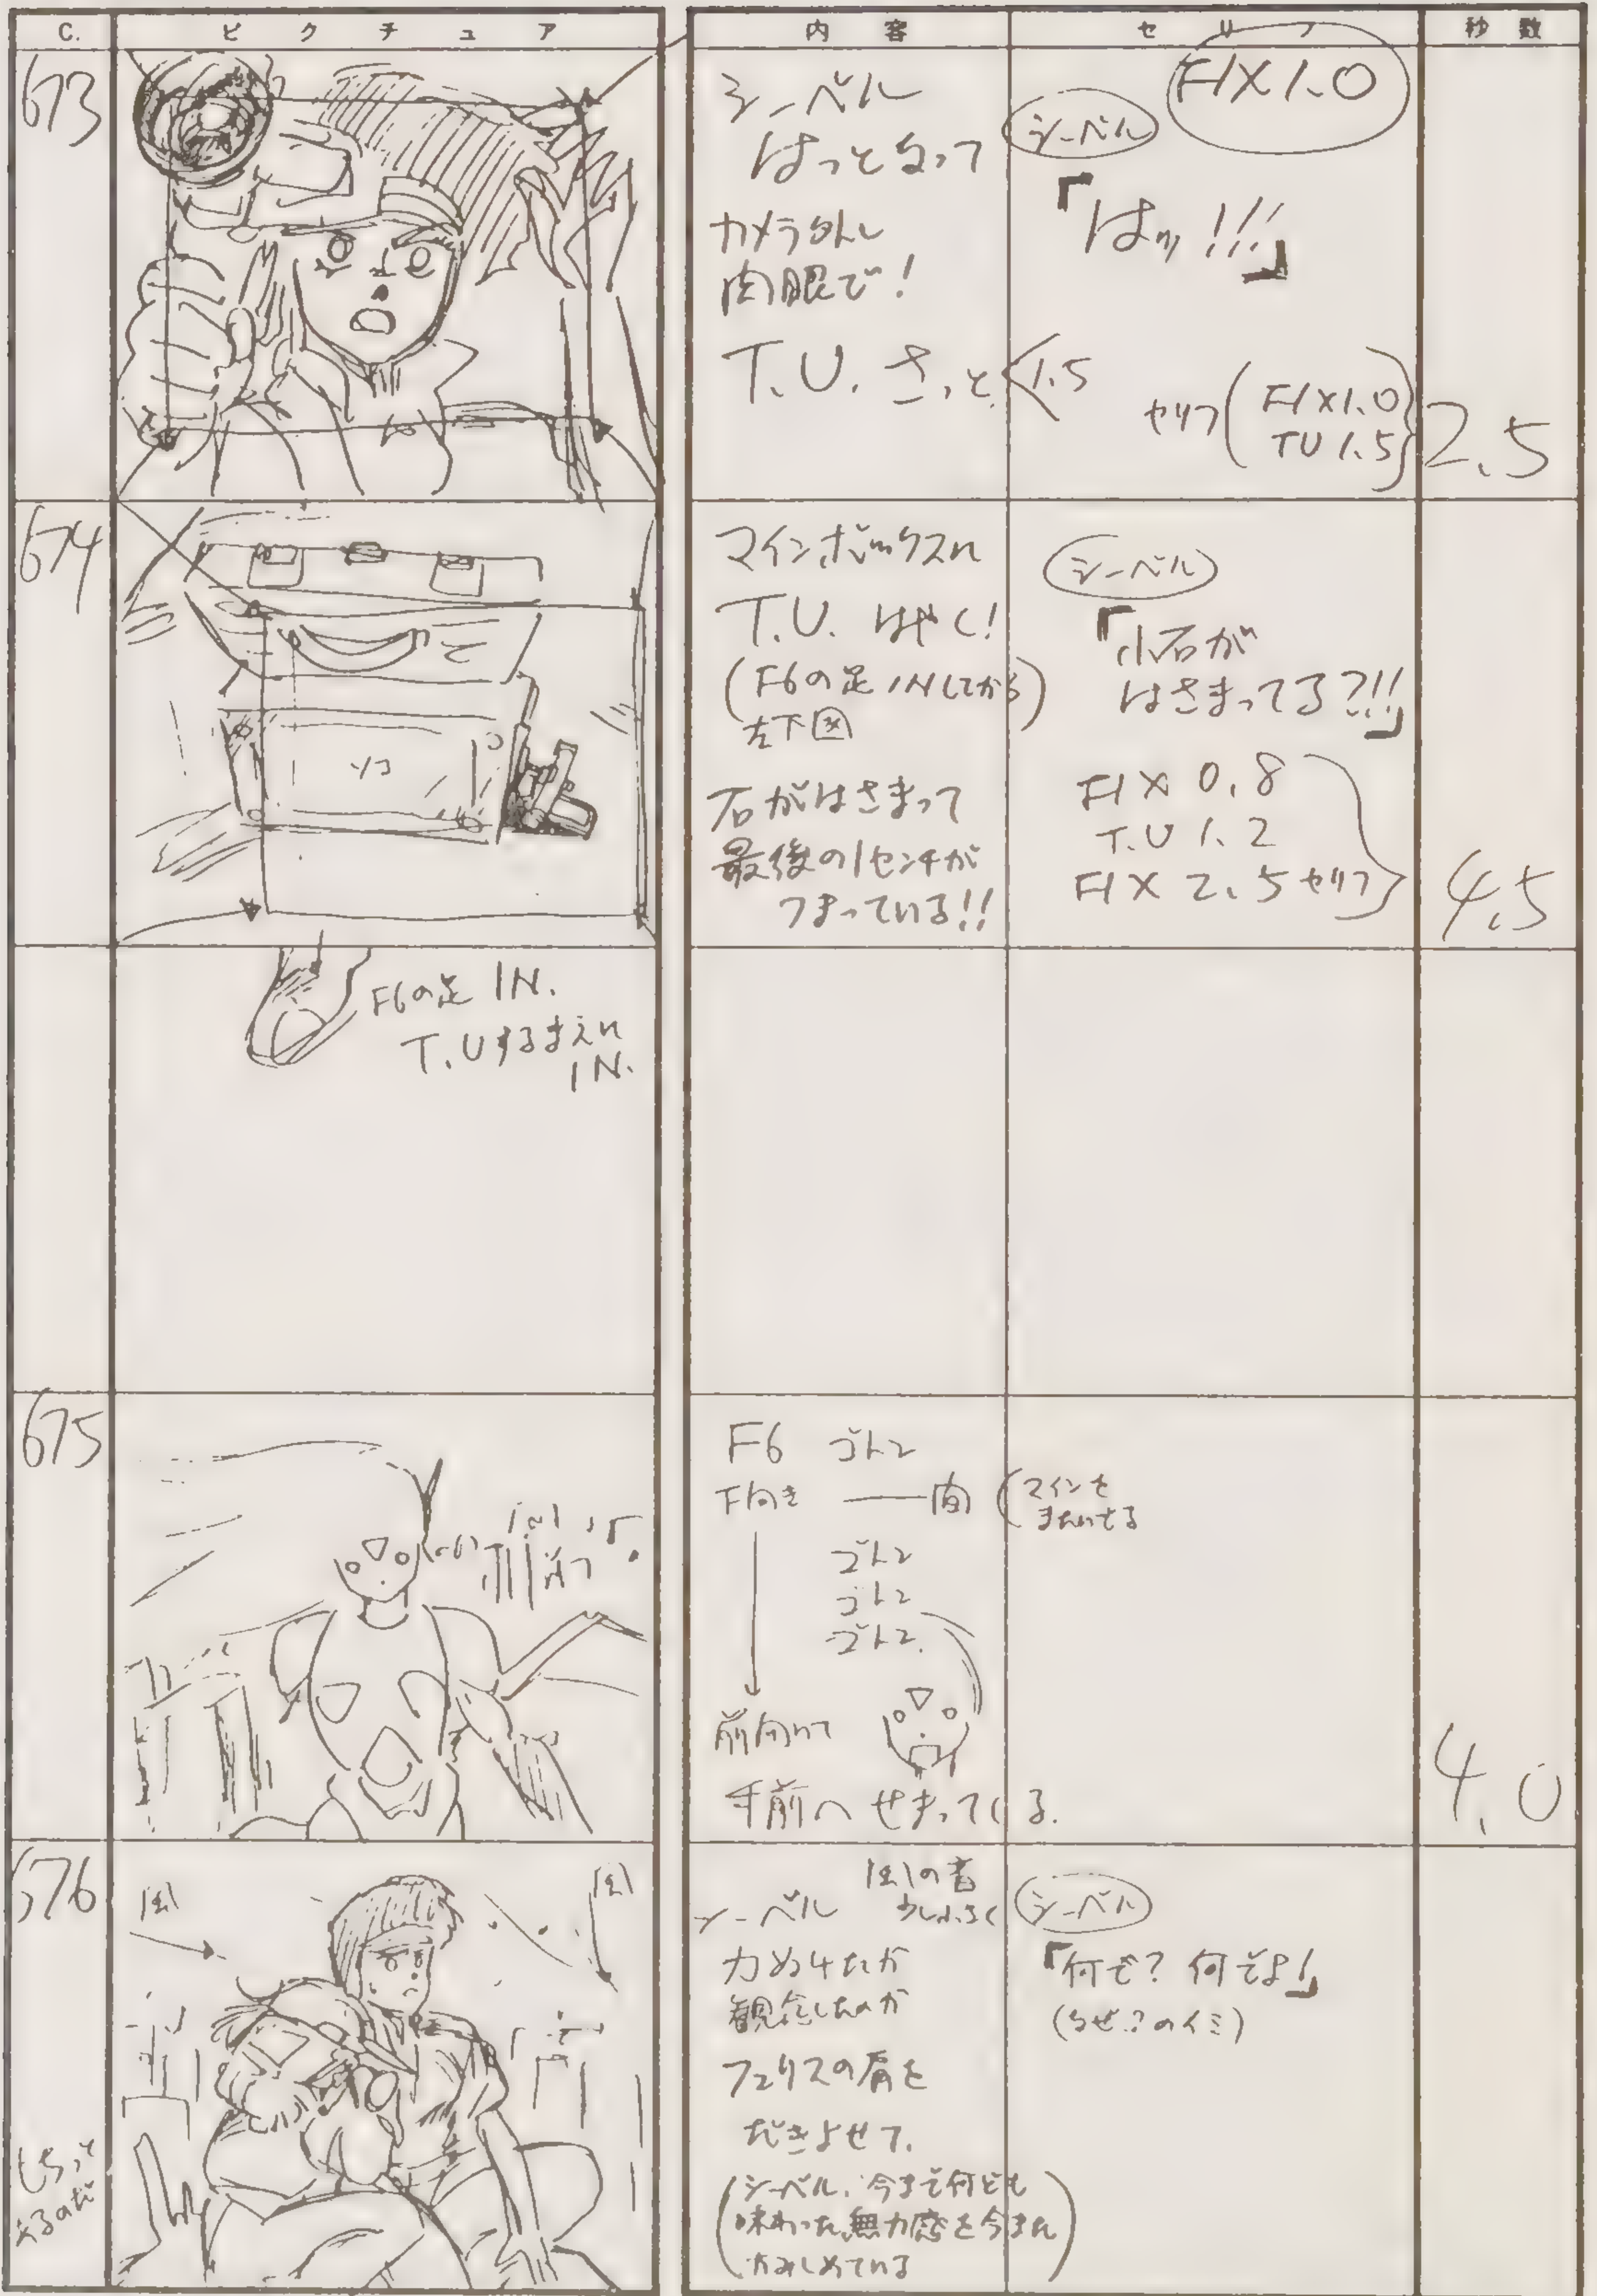 C.
ピクチュア
内容
セリフ
秒数
673
シーベル
はっとなって
カメラ外し
肉眼で!
T.U. さっと <1.5
FIX 1.0
シーベル
「はッ!!!」
セリフ(FIX 1.0
TU 1.5)
2.5
674
ソコ
マインボックスに
T.U. はやく!
(F6の足 INしてから)
左下図
石がはさまって
最後の1センチが
つまっている!!
シーベル
「小石が
はさまってる?!!」
FIX 0.8
T.U 1.2
FIX 2.5 セリフ
4.5
F6の足 IN.
T.Uするまえに
IN.
675
F6 ゴトン
下向き ——間
(マインを
ゴトン
ゴトン
ゴトン.
前向いて
手前へ せまってくる.
4.0
676
風
風
シーベル
風の音
力ぬけたか
観念したのか
フェリスの肩を
だきよせて.
(シーベル、今まで何ども
味わった無力感を今また
かみしめている)
シーベル
「何で? 何でよ!」
(なぜ?のイミ)